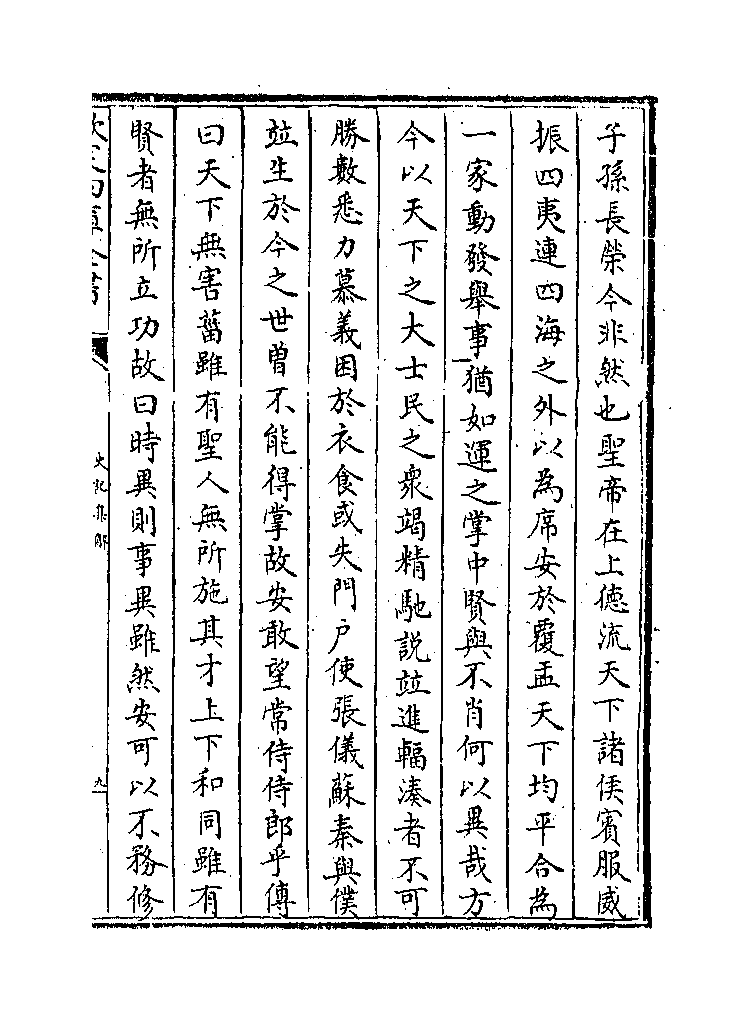 子孫長榮今非然也聖帝在上徳流天下諸侯賓服威
振四夷連四海之外以為席安於覆盂天下均平合為
一家動發舉事猶如運之掌中賢與不肖何以異哉方
今以天下之大士民之衆竭精馳說竝進輻湊者不可
勝數悉力慕義困於衣食或失門戶使張儀蘇秦與僕
竝生於今之世曽不能得掌故安敢望常侍侍郎乎傳
曰天下無害菑雖有聖人無所施其才上下和同雖有
賢者無所立功故曰時異則事異雖然安可以不務修
欽定四庫全書
史記集解
九